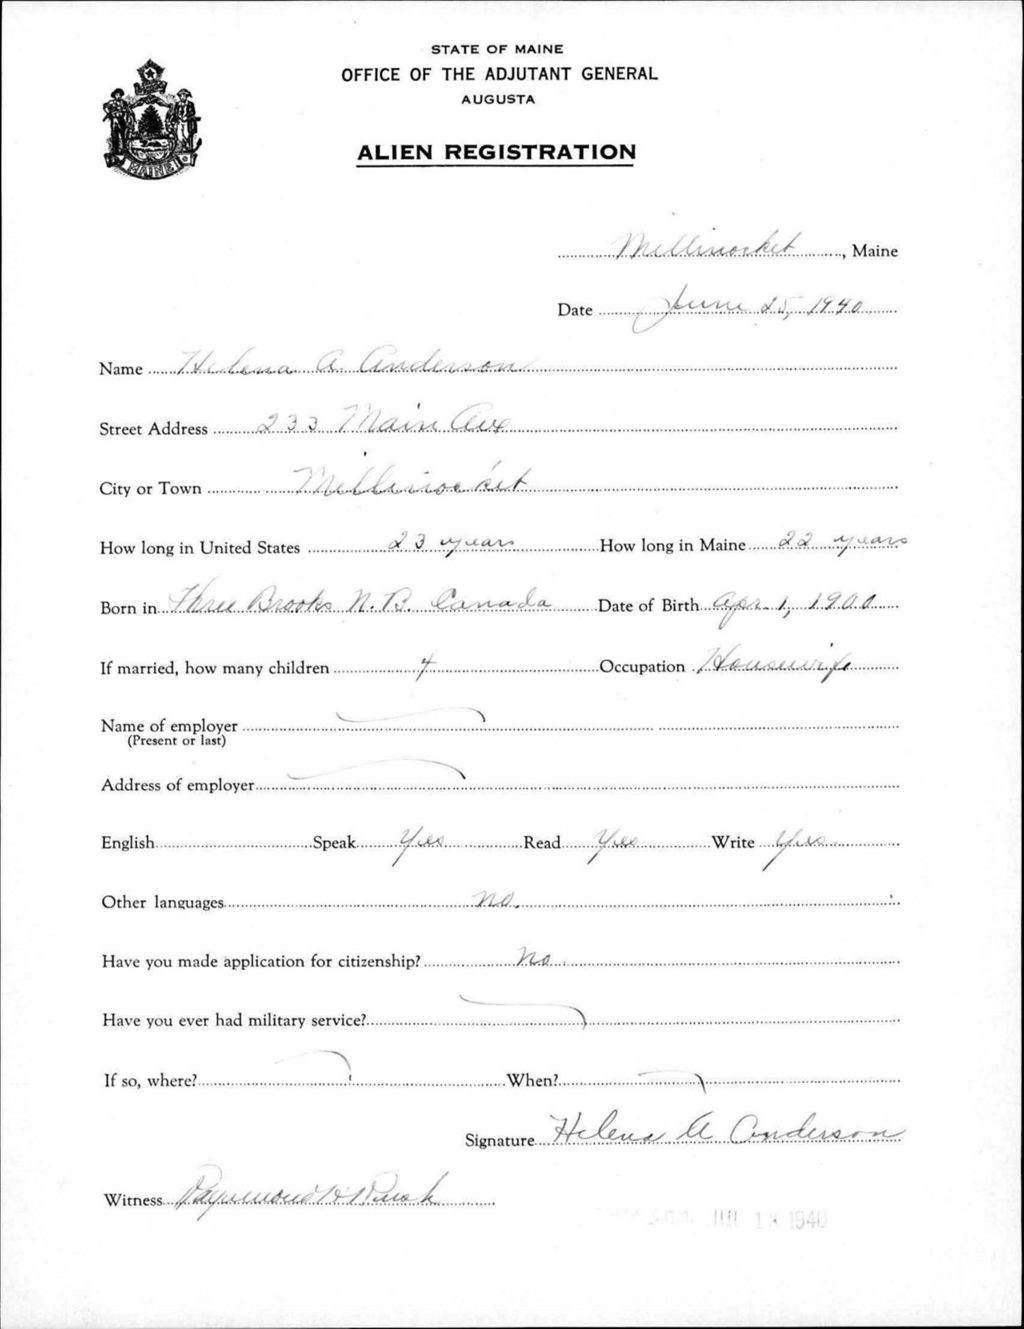 STATE OF MAINE
OFFICE OF THE ADJUTANT GENERAL
AUGUSTA
ALIEN REGISTRATION
MAINE
Millinocket, Maine
Date June 25, 1940
Name Helena A. Anderson
Street Address 233 Main Ave
City or Town Millinocket
How long in United States 23 years How long in Maine 22 years
Born in Three Brooks N.B. Canada Date of Birth Apr. 1, 1900
If married, how many children 4 Occupation Housewife
Name of employer
(Present or last)
Address of employer
English Speak Yes Read Yes Write Yes
Other languages no.
Have you made application for citizenship? No
Have you ever had military service?
If so, where? When?
Signature Helena A Anderson
Witness Raymond H Rush
JUL 1940